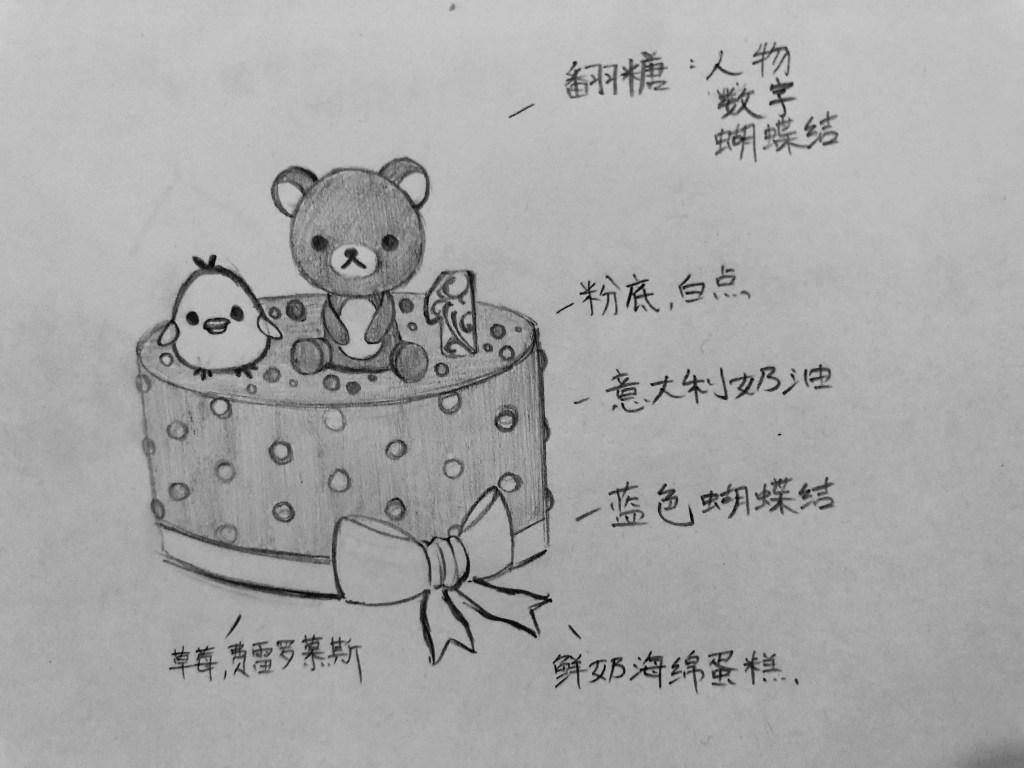 翻糖：人物
数字
蝴蝶结
粉底,白点、
意大利奶油
蓝色蝴蝶结
草莓,费雷罗慕斯
鲜奶海绵蛋糕.